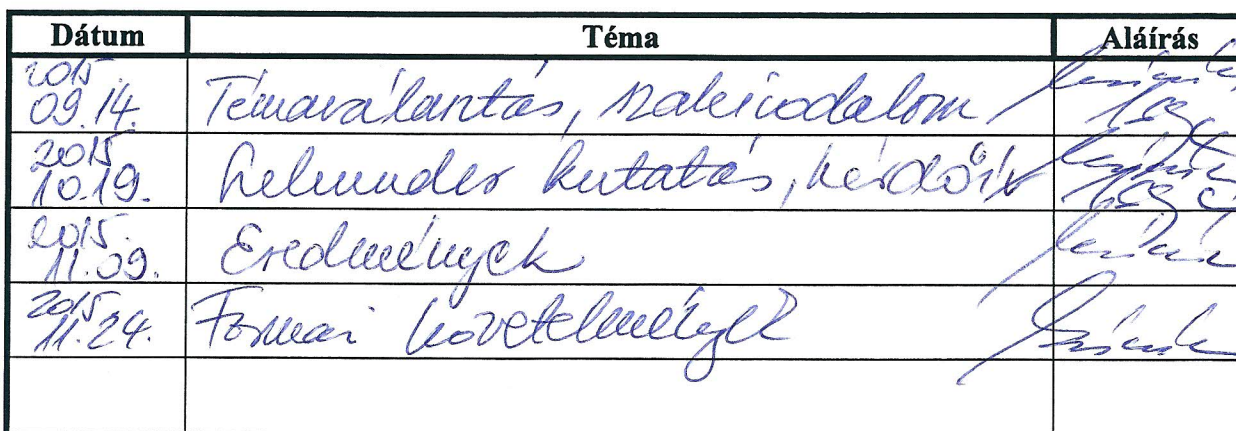 Dátum Téma Aláírás
2015.
09.14. Témaválasztás, szakirodalom
2015
10.19. kutatás, kérdőív
2015.
11.09. Eredmények
2015.
11.24. Formai követelmények